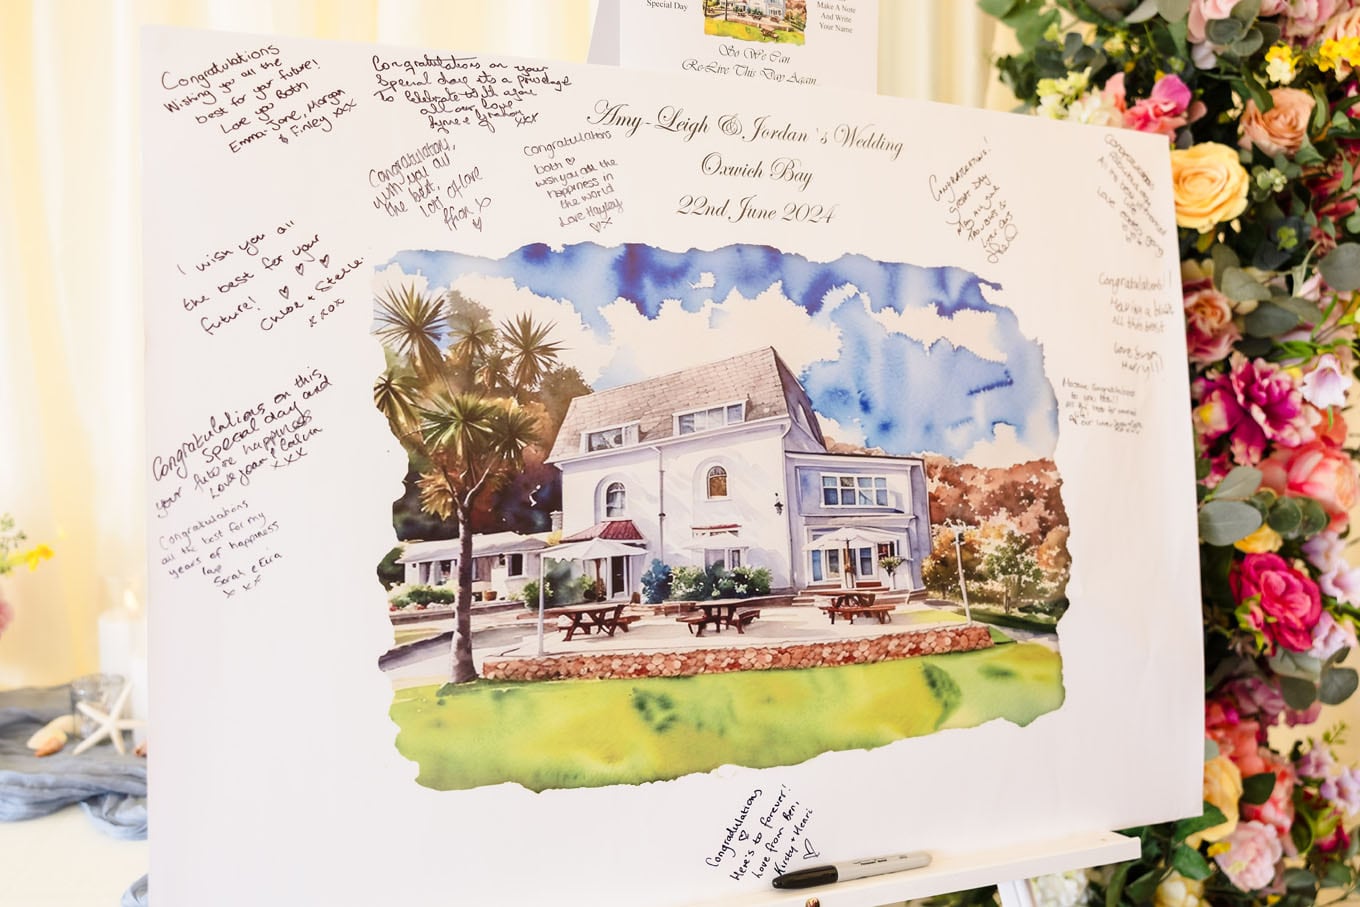 Special Day
Make A Note
And Write
Your Name
So We Can
Re-Live This Day Again
Amy-Leigh & Jordan's Wedding
Oxwich Bay
22nd June 2024
Congratulations
Wishing you all the
best for your future!
Love you Both
Emma-Jane, Morgan
& Finley xxx
Congratulations on your
Special day its a privilage
To Celebrate with you
all our love
Lynne & Graham
xxx
Congratulations,
wish you all
the best,
lots of love
Ffion x
Congratulations
both
wish you all the
happiness in
the world
Love Hayley
xx
I wish you all
the best for your
future!
Chloe + Stelle.
xxox
Congratulations on this
Special day and
your future happiness
Love Joan & 
xxx
Congratulations
all the best for my
years of happiness
love
Sarah & Erica
xxx
Congratulations!
Great Day
Congratulations!
Having a blast
All the best
Love
Harry!!!
Congratulations
to you both!!
Congratulations
Here's to forever!
Love from Ben,
Kirsty + Henri